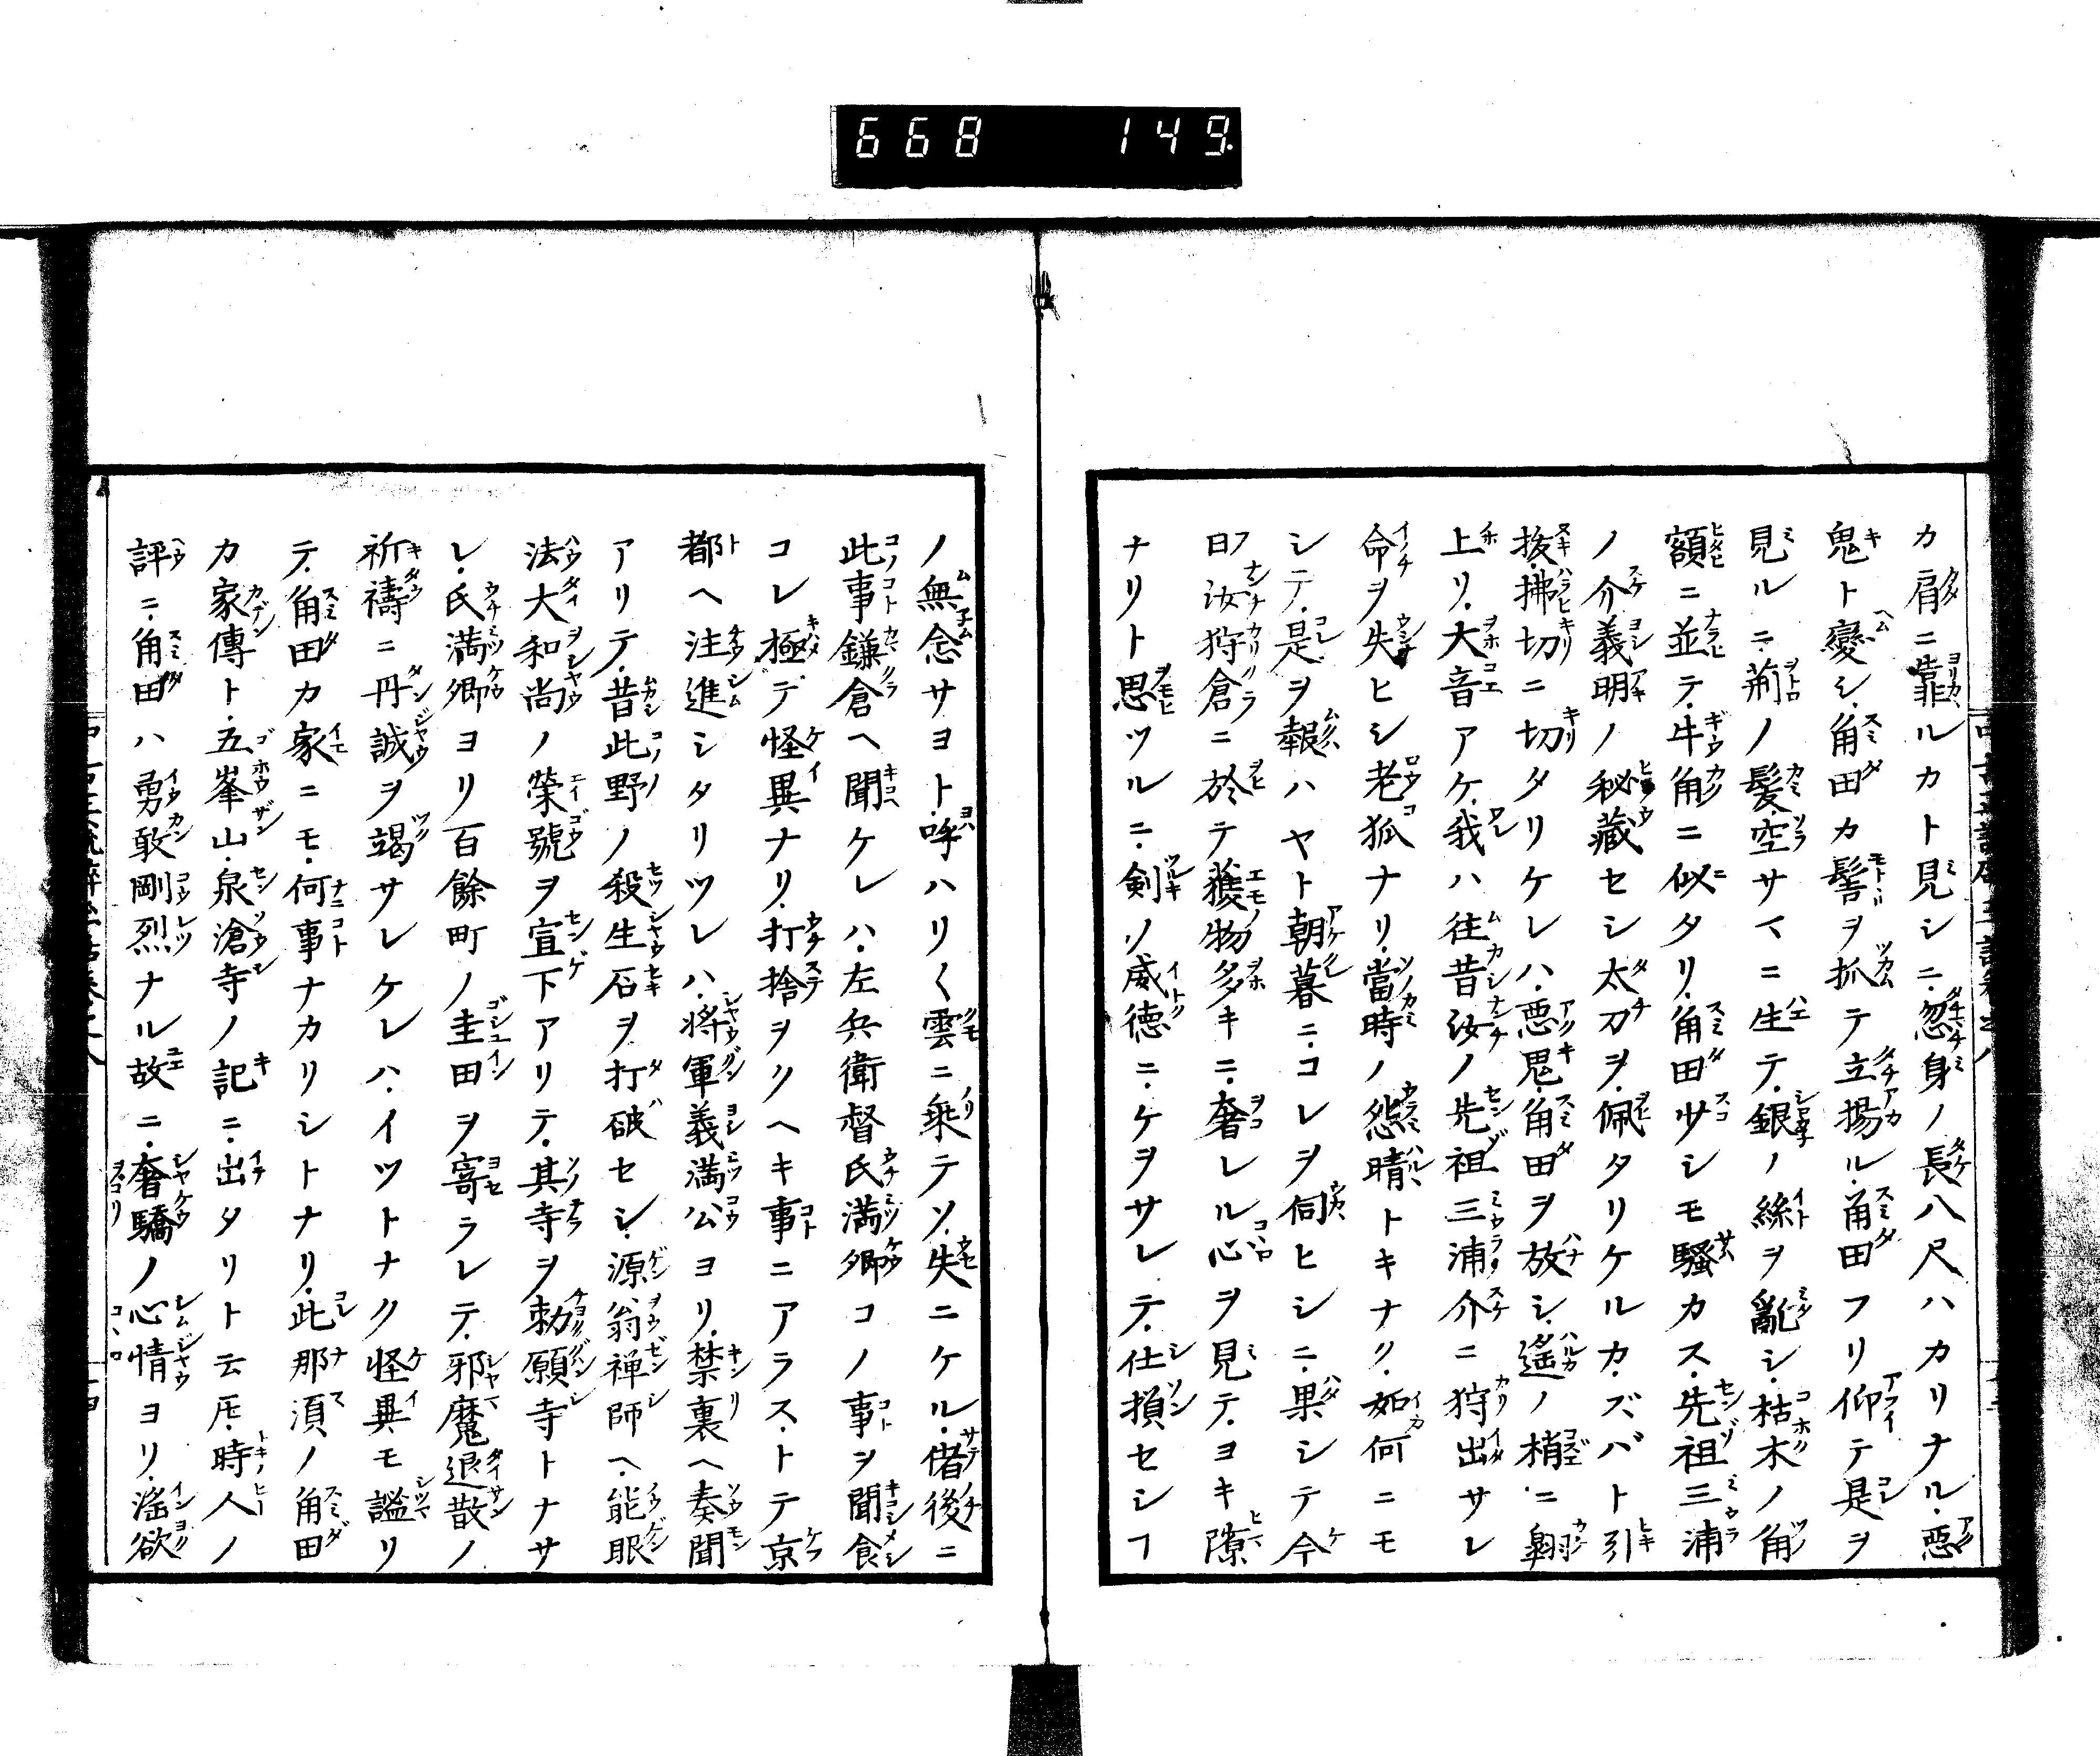 668 149
カ肩ニ靠ルカト見シニ忽身ノ長八尺ハカリナル悪
鬼ト變シ角田カ髻ヲ抓テ立揚ル角田フリ仰テ是ヲ
見ルニ荊ノ髪空サマニ生テ銀ノ絲ヲ亂シ枯木ノ角
額ニ並テ牛角ニ似タリ角田少シモ騒カス先祖三浦
ノ介義明ノ秘藏セシ太刀ヲ佩タリケルカズバト引
抜拂切ニ切タリケレハ悪鬼角田ヲ放シ遙ノ梢ニ翔
上リ大音アケ我ハ往昔汝ノ先祖三浦介ニ狩出サレ
命ヲ失ヒシ老狐ナリ當時ノ怨晴トキナク如何ニモ
シテ是ヲ報ハヤト朝暮ニコレヲ伺ヒシニ果シテ今
日汝狩倉ニ於テ獲物多キニ奢レル心ヲ見テヨキ隙
ナリト思ツルニ剣ノ威徳ニケヲサレテ仕損セシヿ
ノ無念サヨト呼ハリ〱雲ニ乗テソ失ニケル偖後ニ
此事鎌倉ヘ聞ケレハ左兵衛督氏満卿コノ事ヲ聞食
コレ極テ怪異ナリ打捨ヲクヘキ事ニアラストテ京
都ヘ注進シタリツレハ将軍義満公ヨリ禁裏ヘ奏聞
アリテ昔此野ノ殺生石ヲ打破セシ源翁禅師ヘ能眼
法大和尚ノ榮號ヲ宣下アリテ其寺ヲ勅願寺トナサ
レ氏満卿ヨリ百餘町ノ圭田ヲ寄ラレテ邪魔退散ノ
祈禱ニ丹誠ヲ竭サレケレハイツトナク怪異モ謐リ
テ角田カ家ニモ何事ナカリシトナリ此那須ノ角田
カ家傳ト五峯山泉滄寺ノ記ニ出タリト云𪜈時人ノ
評ニ角田ハ勇敢剛烈ナル故ニ奢驕ノ心情ヨリ淫欲